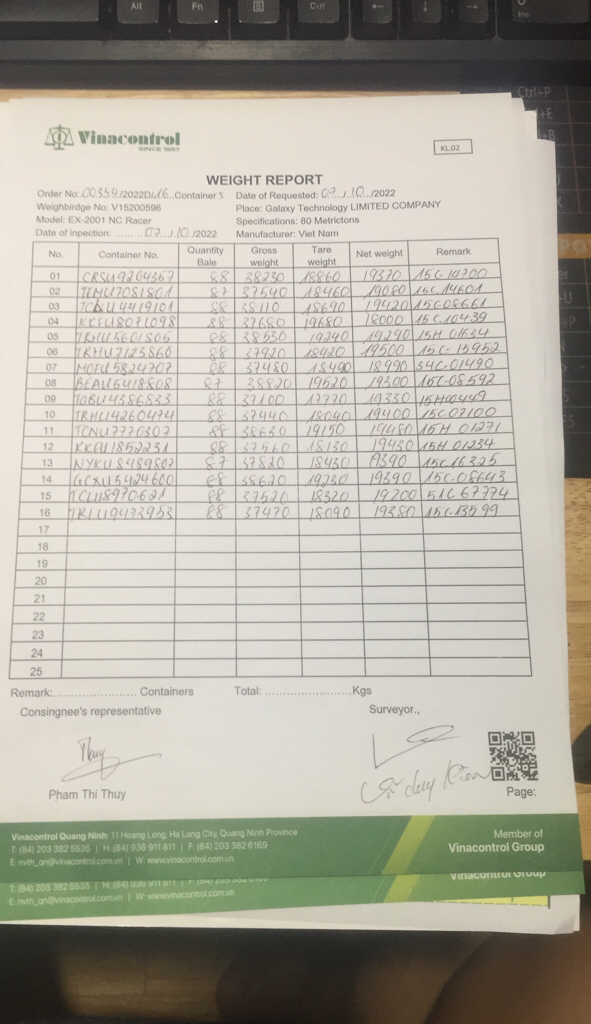 Alt
Fn
Ctrl
←
↓
→
Ins
Ctrl+P
Vinacontrol
SINCE 1957
KL.02
WEIGHT REPORT
Order No: 00354/2022D/16 Container S Date of Requested: 07/10/2022
Weighbridge No: V15200596 Place: Galaxy Technology LIMITED COMPANY
Model: EX-2001 NC Racer Specifications: 80 Metrictons
Date of inpection: 07/10/2022 Manufacturer: Viet Nam
No. Container No. Quantity Bale Gross weight Tare weight Net weight Remark
01 CRSU9204367 88 38230 18860 19370 15C-14700
02 87 37540 18460 19080 15C-14601
03 88 38110 18690 19420 15C08661
04 KKFU8071098 88 37680 19680 18000 15C-10439
05 TRHU3601805 88 38530 19240 19290 15H 01634
06 TRHU7123860 88 37920 18420 19500 15C-15952
07 88 37480 18490 18990 34C-01490
08 BEAU6418808 87 38820 19520 19300 15C-08592
09 88 37100 17770 19330
10 TRHU4260474 88 37440 18040 19400 15C07100
11 TCNU7770307 88 38630 19150 19480 15H 01271
12 KKFU1852231 88 37560 18130 19430 15H 01234
13 NYKU8489807 87 37820 18430 19390 15C16325
14 GCXU5424600 88 38620 19230 19390 15C-08643
15 TCLU8970621 88 37520 18320 19200 51C67774
16 88 37470 18090 19380 15C-13599
17
18
19
20
21
22
23
24
25
Remark:........................ Containers Total: ..........................Kgs
Consingnee's representative Surveyor.,
Thuy
Pham Thi Thuy
Page:
Vinacontrol Quang Ninh: 11 Hoang Long. Ha Long City, Quang Ninh Province
T: (84) 203 382 5535 | H: (84) 938 911 811 | F: (84) 203 382 6169
E: nvth_qn@vinacontrol.com.vn | W: www.vinacontrol.com.vn
Member of
Vinacontrol Group
T: (84) 203 382 5535 | H: (84) 938 911 811
E: nvth_qn@vinacontrol.com.vn | W: www.vinacontrol.com.vn
Vinacontrol Group